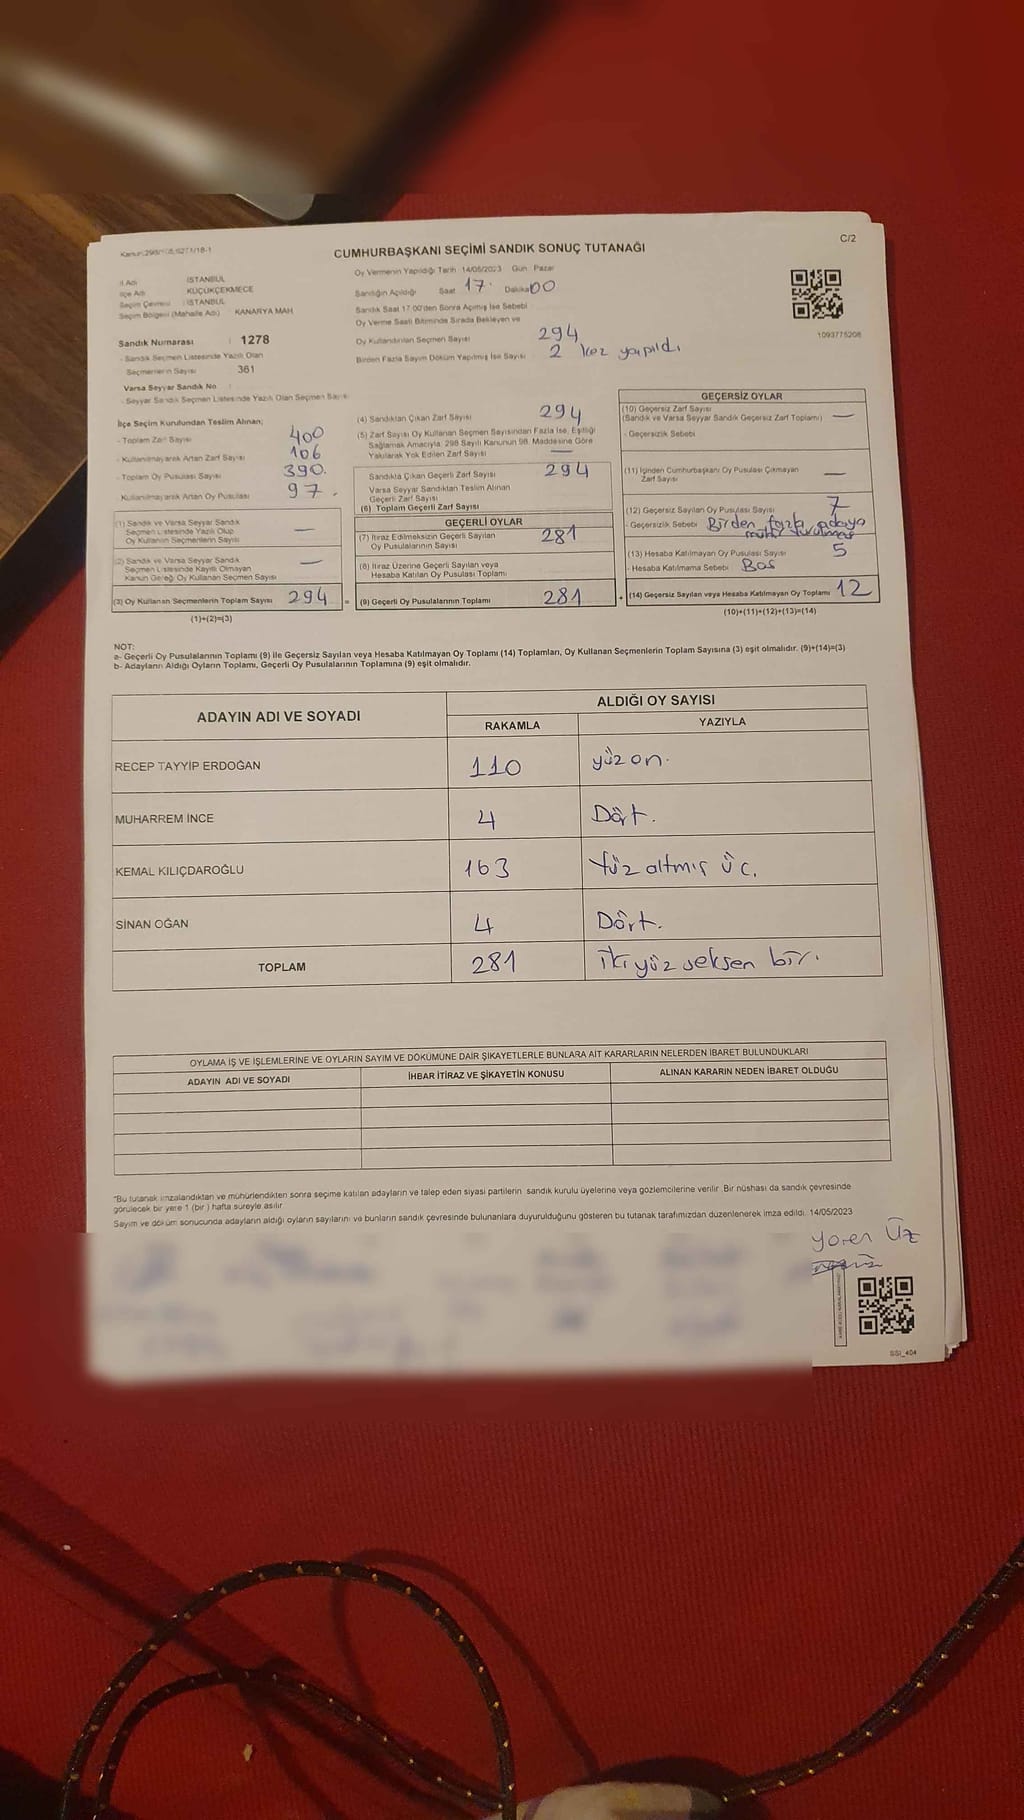 C/2
CUMHURBAŞKANI SEÇİMİ SANDIK SONUÇ TUTANAĞI
İl Adı İSTANBUL
İlçe Adı KÜÇÜKÇEKMECE
Seçim Çevresi İSTANBUL
Seçim Bölgesi (Mahalle Adı) KANARYA MAH
Sandık Numarası : 1278
- Sandık Seçmen Listesinde Yazılı Olan
Seçmenlerin Sayısı 361
Varsa Seyyar Sandık No :
- Seyyar Sandık Seçmen Listesinde Yazılı Olan Seçmen Sayısı
Oy Vermenin Yapıldığı Tarih 14/05/2023 Gün Pazar
Sandığın Açıldığı Saat 17. Dakika 00
Sandık Saat 17:00'den Sonra Açılmış İse Sebebi
Oy Verme Saati Bitiminde Sırada Bekleyen ve
Oy Kullandırılan Seçmen Sayısı 294
Birden Fazla Sayım Döküm Yapılmış İse Sayısı 2 kez yapıldı
1093775208
İlçe Seçim Kurulundan Teslim Alınan;
- Toplam Zarf Sayısı 400
- Kullanılmayarak Artan Zarf Sayısı 106
- Toplam Oy Pusulası Sayısı 390.
Kullanılmayarak Artan Oy Pusulası 97.
(1) Sandık ve Varsa Seyyar Sandık
Seçmen Listesinde Yazılı Olup
Oy Kullanan Seçmenlerin Sayısı —
(2) Sandık ve Varsa Seyyar Sandık
Seçmen Listesinde Kayıtlı Olmayan
Kanun Gereği Oy Kullanan Seçmen Sayısı —
(3) Oy Kullanan Seçmenlerin Toplam Sayısı 294 =
(1)+(2)=(3)
(4) Sandıktan Çıkan Zarf Sayısı 294
(5) Zarf Sayısı Oy Kullanan Seçmen Sayısından Fazla İse, Eşitliği
Sağlamak Amacıyla; 298 Sayılı Kanunun 98. Maddesine Göre
Yakılarak Yok Edilen Zarf Sayısı —
Sandıkta Çıkan Geçerli Zarf Sayısı 294
Varsa Seyyar Sandıktan Teslim Alınan
Geçerli Zarf Sayısı
(6) Toplam Geçerli Zarf Sayısı
GEÇERLİ OYLAR
(7) İtiraz Edilmeksizin Geçerli Sayılan
Oy Pusulalarının Sayısı 281
(8) İtiraz Üzerine Geçerli Sayılan veya
Hesaba Katılan Oy Pusulası Toplamı
(9) Geçerli Oy Pusulalarının Toplamı 281 +
GEÇERSİZ OYLAR
(10) Geçersiz Zarf Sayısı
(Sandık ve Varsa Seyyar Sandık Geçersiz Zarf Toplamı) —
- Geçersizlik Sebebi
(11) İçinden Cumhurbaşkanı Oy Pusulası Çıkmayan
Zarf Sayısı —
(12) Geçersiz Sayılan Oy Pusulası Sayısı 7
- Geçersizlik Sebebi Birden fazla adaya
mühür
(13) Hesaba Katılmayan Oy Pusulası Sayısı 5
- Hesaba Katılmama Sebebi Boş
(14) Geçersiz Sayılan veya Hesaba Katılmayan Oy Toplamı 12
(10)+(11)+(12)+(13)=(14)
NOT:
a- Geçerli Oy Pusulalarının Toplamı (9) ile Geçersiz Sayılan veya Hesaba Katılmayan Oy Toplamı (14) Toplamları, Oy Kullanan Seçmenlerin Toplam Sayısına (3) eşit olmalıdır. (9)+(14)=(3)
b- Adayların Aldığı Oyların Toplamı, Geçerli Oy Pusulalarının Toplamına (9) eşit olmalıdır.
ADAYIN ADI VE SOYADI
ALDIĞI OY SAYISI
RAKAMLA YAZIYLA
RECEP TAYYİP ERDOĞAN 110 yüz on.
MUHARREM İNCE 4 Dört.
KEMAL KILIÇDAROĞLU 163 Yüz altmış üç.
SİNAN OĞAN 4 Dört.
TOPLAM 281 iki yüz seksen bir.
OYLAMA İŞ VE İŞLEMLERİNE VE OYLARIN SAYIM VE DÖKÜMÜNE DAİR ŞİKAYETLERLE BUNLARA AİT KARARLARIN NELERDEN İBARET BULUNDUKLARI
ADAYIN ADI VE SOYADI İHBAR İTİRAZ VE ŞİKAYETİN KONUSU ALINAN KARARIN NEDEN İBARET OLDUĞU
"Bu tutanak imzalandıktan ve mühürlendikten sonra seçime katılan adayların ve talep eden siyasi partilerin sandık kurulu üyelerine veya gözlemcilerine verilir. Bir nüshası da sandık çevresinde
görülecek bir yere 1 (bir) hafta süreyle asılır
Sayım ve döküm sonucunda adayların aldığı oyların sayılarını ve bunların sandık çevresinde bulunanlara duyurulduğunu gösteren bu tutanak tarafımızdan düzenlenerek imza edildi. 14/05/2023
SSI_404